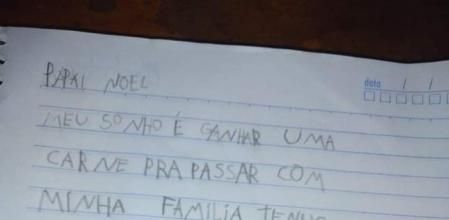 PAPAI NOEL
data / /
MEU SONHO É GANHAR UMA
CARNE PRA PASSAR COM
MINHA FAMILIA TENHO